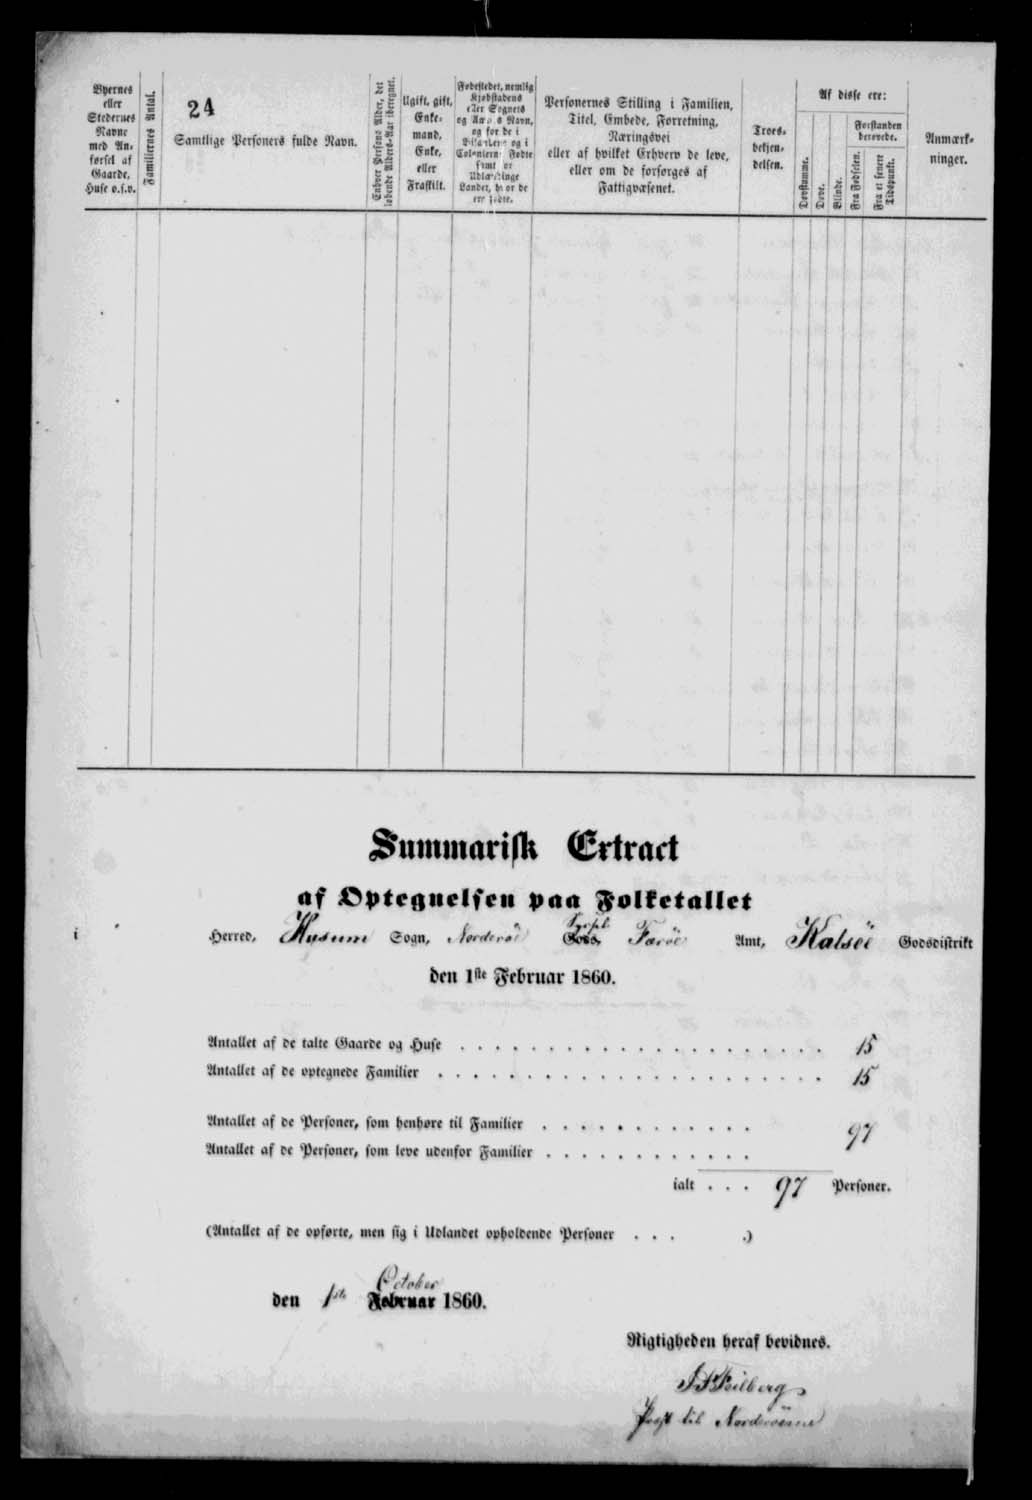 24
Byernes
eller
Stedernes
Navne
med An-
førsel af
Gaarde,
Huse o.s.v.
Familiernes Antal.
Samtlige Personers fulde Navn.
Enhver Persons Alder, det
løbende Alders-Aar iberegnet.
Ugift, gift,
Enke-
mand,
Enke,
eller
Fraskilt.
Fødestedet, nemlig
Kjøbstadens
eller Sognets
og Amtets Navn,
og for de i
Bilandene og i
Colonierne Fødte
samt for
Udlændinge
Landet, hvor de
ere fødte.
Personernes Stilling i Familien,
Titel, Embede, Forretning,
Næringsvei
eller af hvilket Erhverv de leve,
eller om de forsørges af
Fattigvæsenet.
Troes-
bekjen-
delsen.
Af disse ere:
Døvstumme.
Døve.
Blinde.
Forstanden
berøvede.
Fra Fødselen.
Fra et senere
Tidspunkt.
Anmærk-
ninger.
Summarisk Extract
af Optegnelsen paa Folketallet
i Herred, Husum Sogn, Norderøe Syssel Færöe Amt, Kalsöe Godsdistrikt
den 1ste Februar 1860.
Antallet af de talte Gaarde og Huse . . . . . . . . . . . . . . . . . . . . . 15
Antallet af de optegnede Familier . . . . . . . . . . . . . . . . . . . . . . 15
Antallet af de Personer, som henhøre til Familier . . . . . . . . . . . . 97
Antallet af de Personer, som leve udenfor Familier . . . . . . . . . . . .
ialt . . . 97 Personer.
(Antallet af de opførte, men sig i Udlandet opholdende Personer . . . .)
October
den 1ste Februar 1860.
Rigtigheden heraf bevidnes.
Feilberg
Præst til Norderöerne